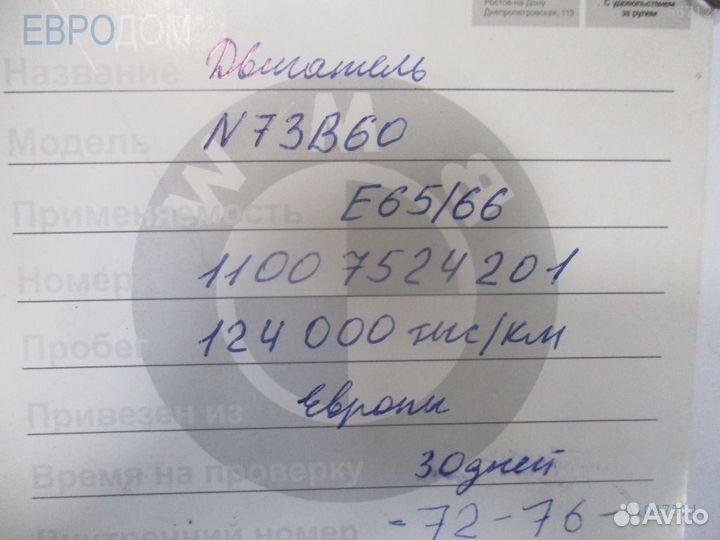 Ростов-на-Дону
Днепропетровская, 113
С удовольствием
за рулем
ЕВРОДОМ
Название Двигатель
Модель N73B60
Применяемость E65/66
Номер 11007524201
Пробег 124 000 тыс/км
Привезен из Европы
Время на проверку 30 дней
Внутренний номер -72-76-
Avito